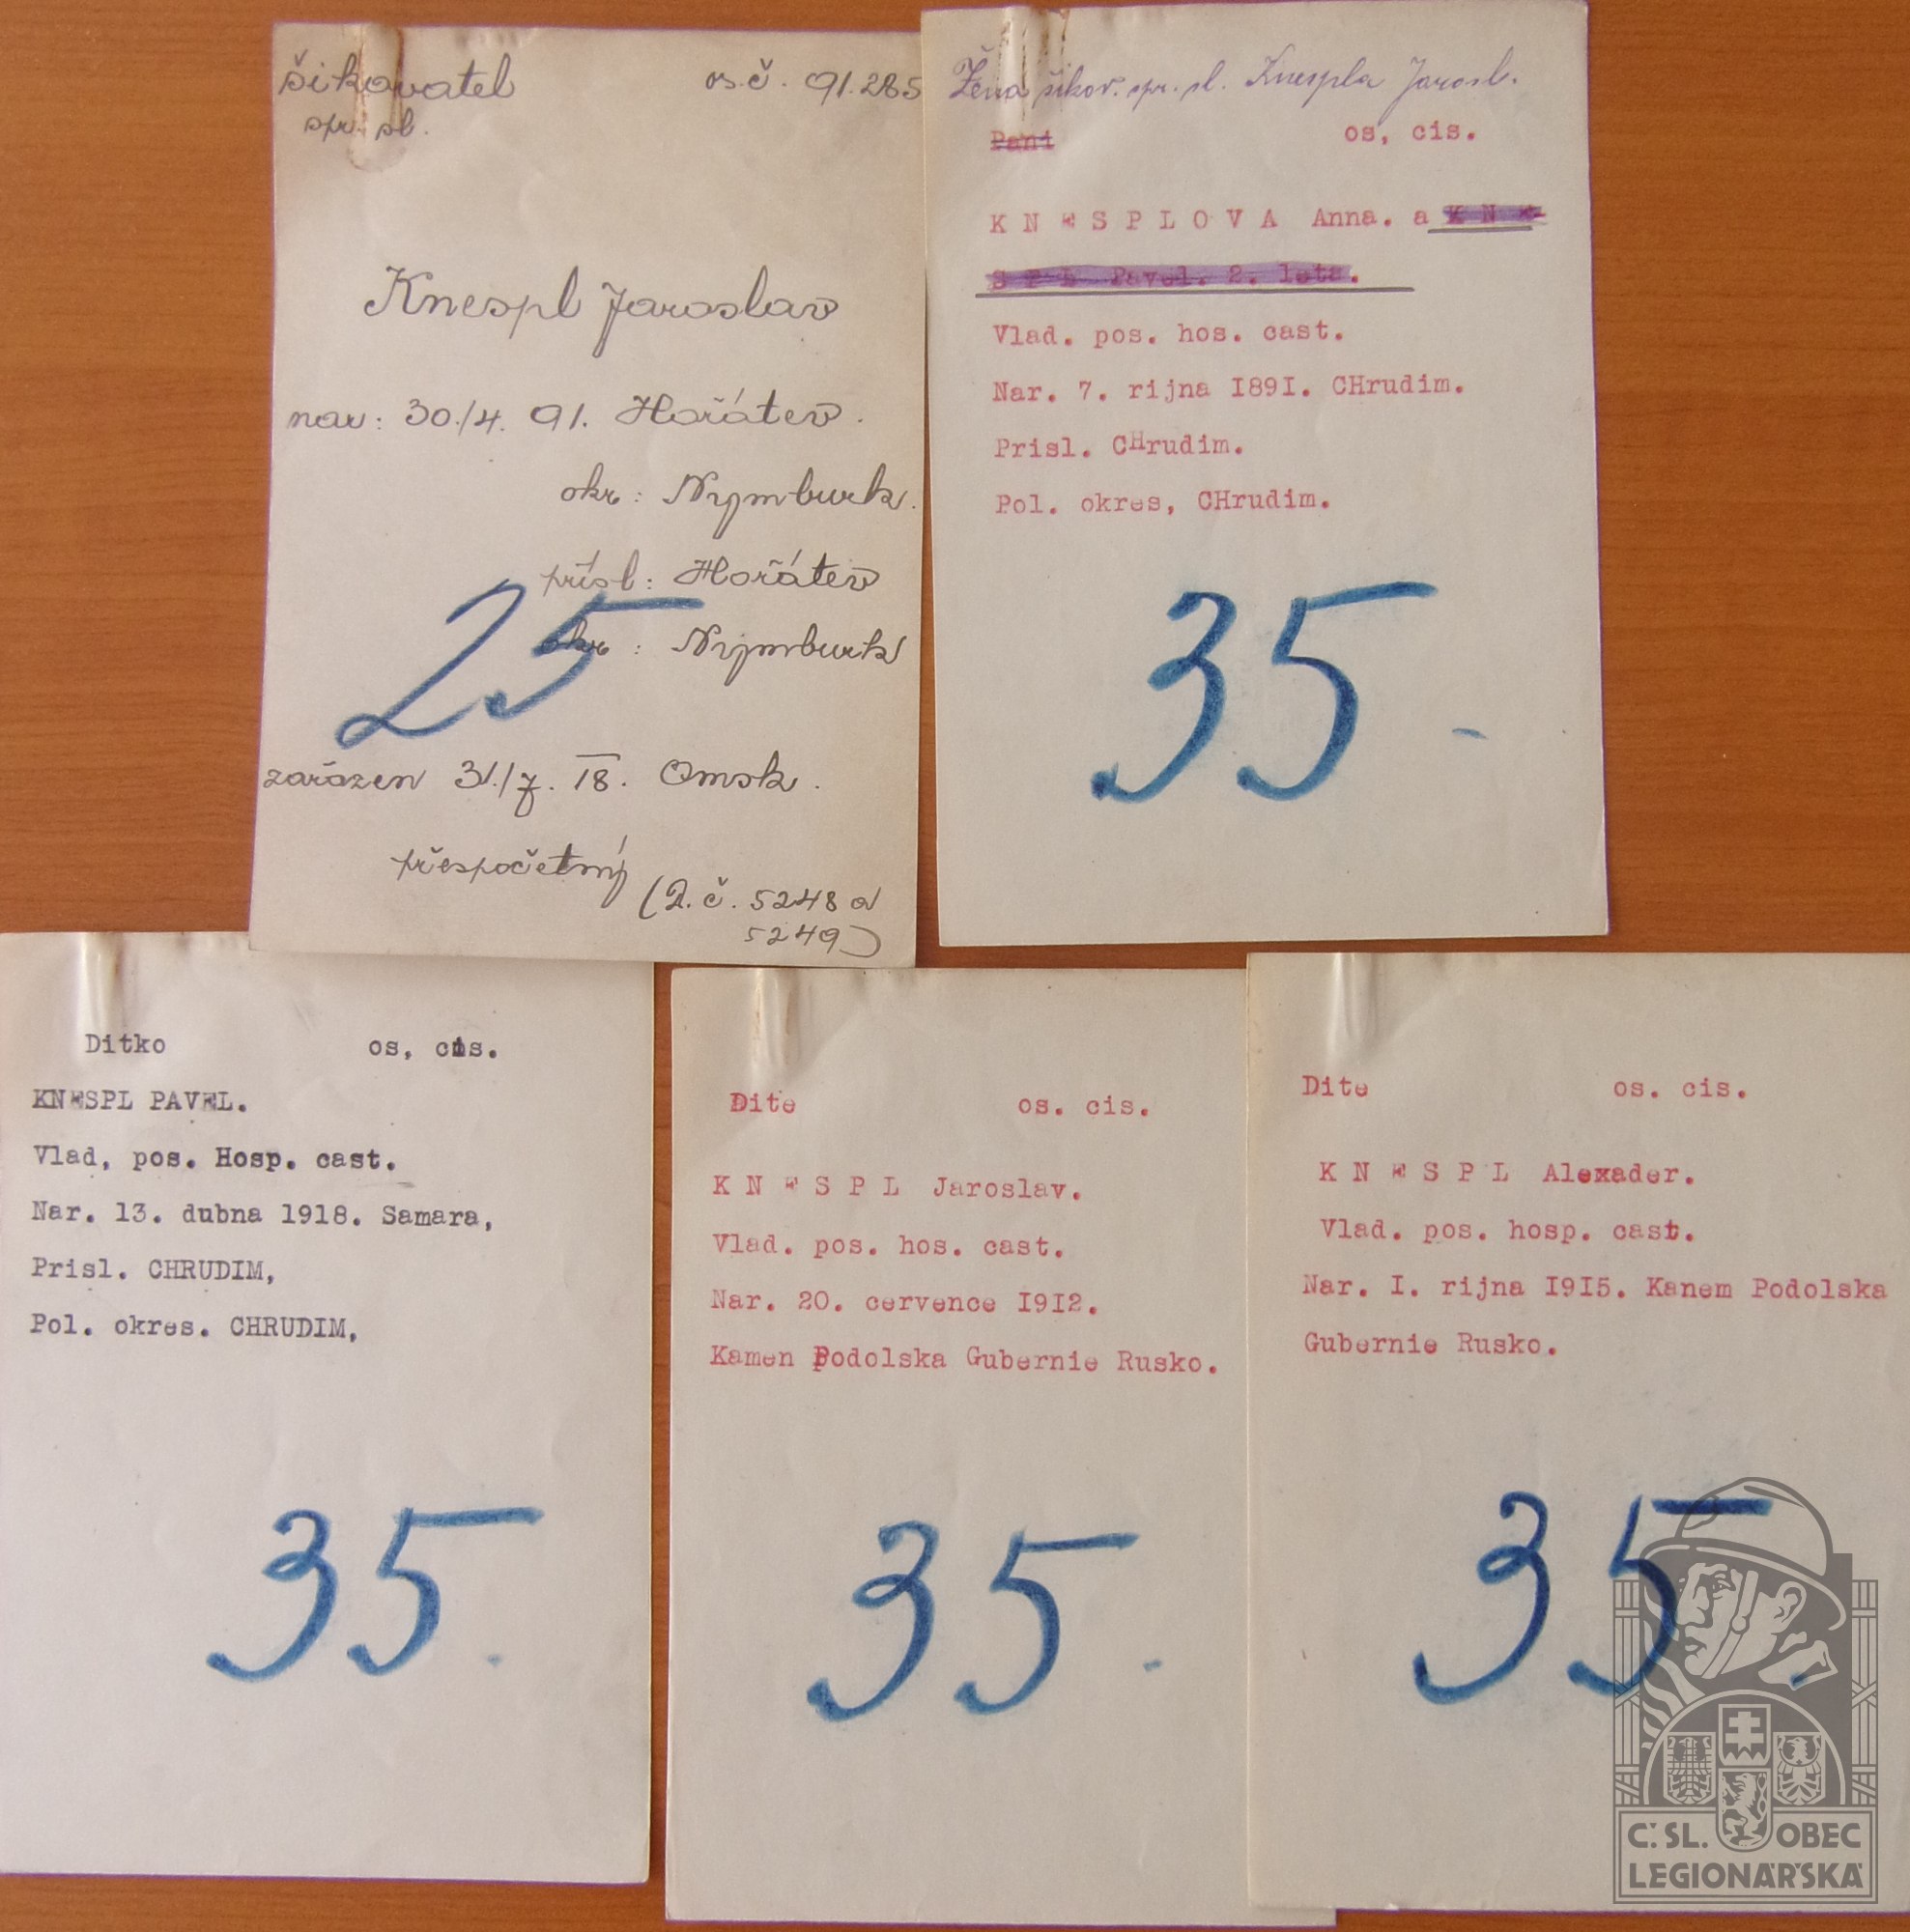 šikovatel os.č. 91.285
spr. sl.
Knespl Jaroslav
nar: 30./4. 91. Hořátev.
okr: Nymburk.
přísl: Hořátev
okr: Nymburk
25
zařazen 31./7. 18. Omsk.
přespočetný
(R.č. 5248 a
5249)
Žena šikov. spr. sl. Knespla Jarosl.
Pani os, cis.
K N E S P L O V A Anna. a K N E
S P L Pavel. 2. leta.
Vlad. pos. hos. cast.
Nar. 7. rijna I89I. CHrudim.
Prisl. CHrudim.
Pol. okres, CHrudim.
35-
Ditko os, cis.
KNESPL PAVEL.
Vlad, pos. Hosp. cast.
Nar. 13. dubna 1918. Samara,
Prisl. CHRUDIM,
Pol. okres. CHRUDIM,
35.
Dite os. cis.
K N E S P L Jaroslav.
Vlad. pos. hos. cast.
Nar. 20. cervence I9I2.
Kamen Podolska Gubernie Rusko.
35.
Dite os. cis.
K N E S P L Alexader.
Vlad. pos. hosp. cast.
Nar. I. rijna I9I5. Kanem Podolska
Gubernie Rusko.
35.
Č.SL. OBEC
LEGIONÁŘSKÁ